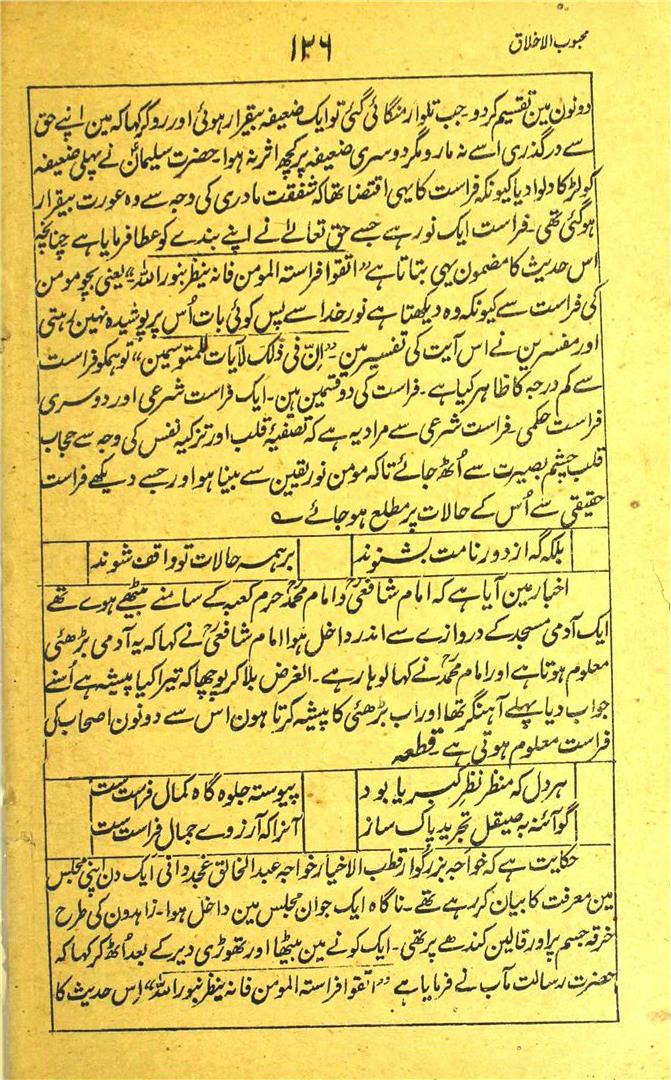 محبوب الاخلاق
۱۲۶
دونون مین تقسیم کردو۔ جب تلوار منگائی گئی تو ایک ضعیفہ بیقرار ہوئی اور رو کر کہا کہ مین اپنے حق
سے در گذری اسے نہ مارو مگر دوسری ضعیفہ پر کچھ اثر نہ ہوا۔ حضرت سلیمانؑ نے پہلی ضعیفہ
کو لڑکا دلوا دیا کیونکہ فراست کا یہی اقتضا تھا کہ شفقت مادری کی وجہ سے وہ عورت بیقرار
ہوگئی تھی۔ فراست ایک نور ہے جسے حق تعالےٰ نے اپنے بندے کو عطا فرمایا ہے چنانچہ
اس حدیث کا مضمون یہی بتاتا ہے ”اتقوا فراستہ المومن فانہ ینظر بنور اللہ“۔ یعنی بچو مومن
کی فراست سے کیونکہ وہ دیکھتا ہے نور خدا سے پس کوئی بات اُس پر پوشیدہ نہین رہتی
اور مفسرین نے اس آیت کی تفسیر مین۔ ”اِنّ فی ذٰلک لآیات للمتوسمین“ توہمکو فراست
سے کم درجہ کا ظاہر کیا ہے۔ فراست کی دو قسمین ہین۔ ایک فراست شرعی اور دوسری
فراست حکمی۔ فراست شرعی سے مراد یہ ہے کہ تصفیۂ قلب اور تزکیہ نفس کی وجہ سے حجاب
قلب چشم بصیرت سے اُٹھ جائے تاکہ مومن نور یقین سے بینا ہو اور جسے دیکھے فراست
حقیقی سے اُس کے حالات پر مطلع ہو جائے ؎
بلکہ گہ از دور نامت بشنوند
بر ہمہ حالات تو واقف شوند
اخبار مین آیا ہے کہ امام شافعیؒ و امام محمدؒ حرم کعبہ کے سامنے بیٹھے ہوے تھے
ایک آدمی مسجد کے دروازے سے اندر داخل ہوا امام شافعیؒ نے کہا کہ یہ آدمی بڑھئی
معلوم ہوتا ہے اور امام محمدؒ نے کہا لوہار ہے۔ الغرض بلا کر پوچھا کہ تیرا کیا پیشہ ہے اُسنے
جواب دیا پہلے آہنگر تھا اور اب بڑھئی کا پیشہ کرتا ہون اس سے دونون اصحاب کی
فراست معلوم ہوتی ہے۔ قطعہ
ہر دل کہ منظر نظر کبریا بود
پیوستہ جلوہ گاہ کمال فراست ست
گو آئنہ بہ صیقل تجرید پاک ساز
آنرا کہ آرزوے جمال فراست ست
حکایت ہے کہ خواجہ بزرگوار قطب الاخیار خواجہ عبد الخالق غجدوانی ایک دن اپنی مجلس
مین معرفت کا بیان کر رہے تھے۔ ناگاہ ایک جوان مجلس مین داخل ہوا۔ زاہدون کی طرح
خرقہ جسم پر اور قالین کندھے پر تھی۔ ایک کونے مین بیٹھا اور تھوڑی دیر کے بعد اُٹھ کر کہا کہ
حضرت رسالت مآب نے فرمایا ہے ”اتقوا فراستہ المومن فانہ ینظر بنور اللہ“ اس حدیث کا